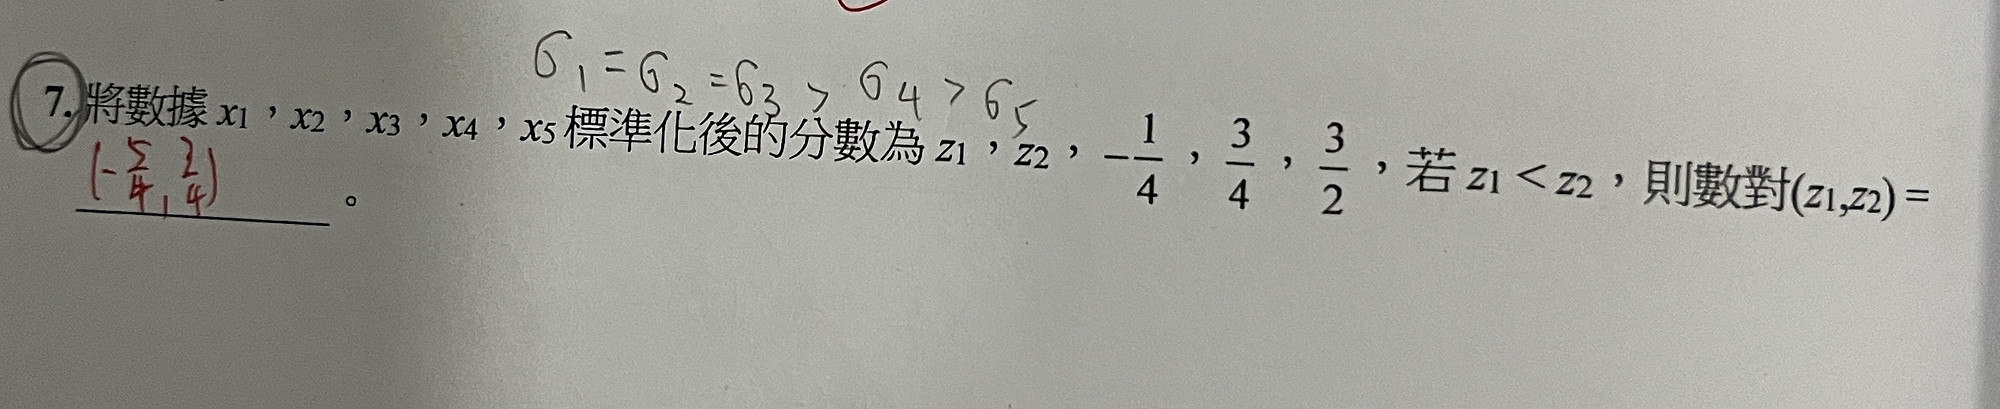 б₁ = б₂ = б₃ > б₄ > б₅
7. 將數據 x1,x2,x3,x4,x5 標準化後的分數為 z1,z2,-1/4,3/4,3/2,若 z1 < z2,則數對(z1,z2) =
(-5/4, 3/4)。